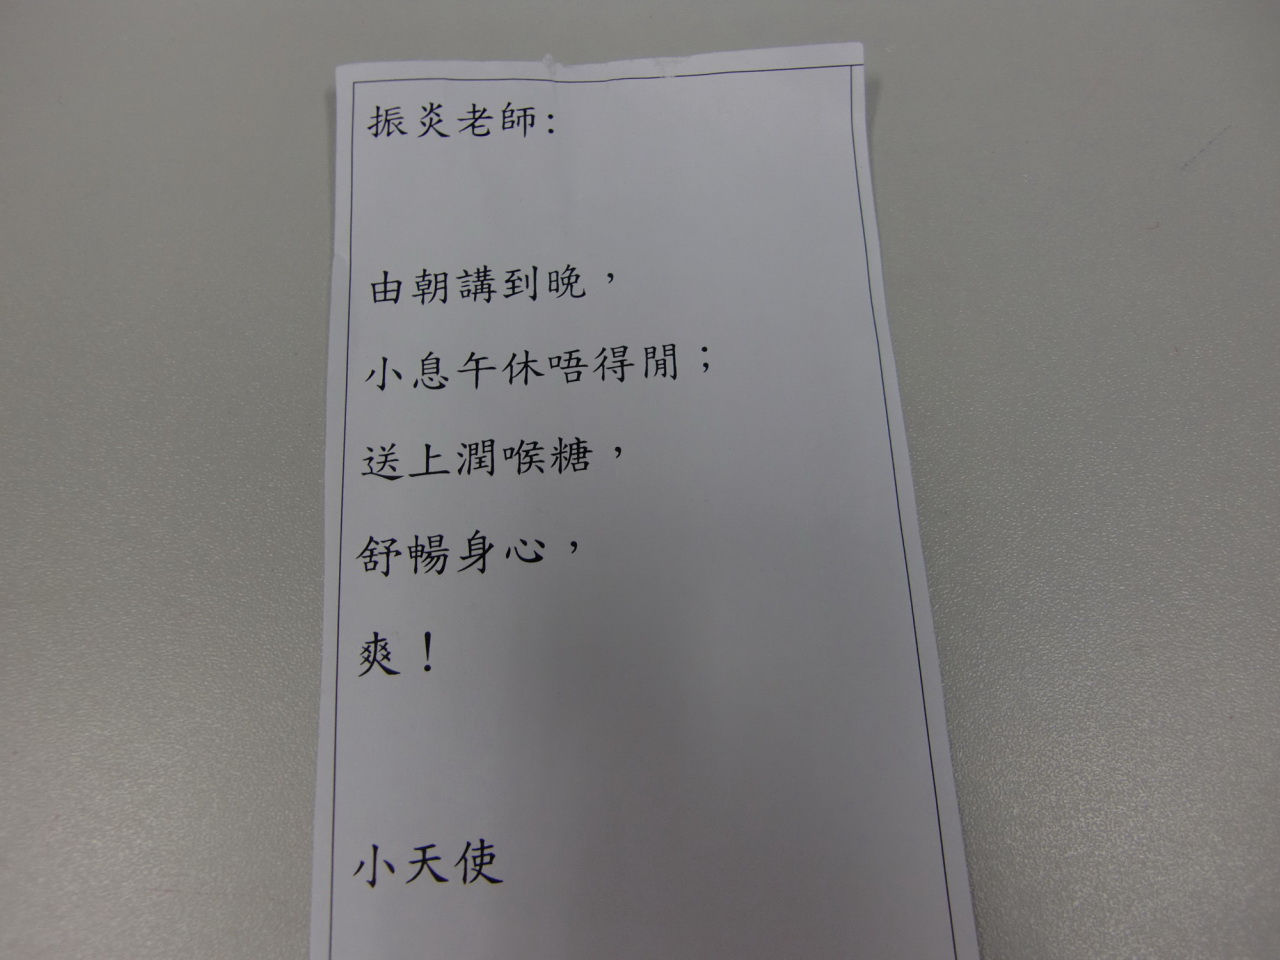 振炎老師:
由朝講到晚，
小息午休唔得閒；
送上潤喉糖，
舒暢身心，
爽！
小天使